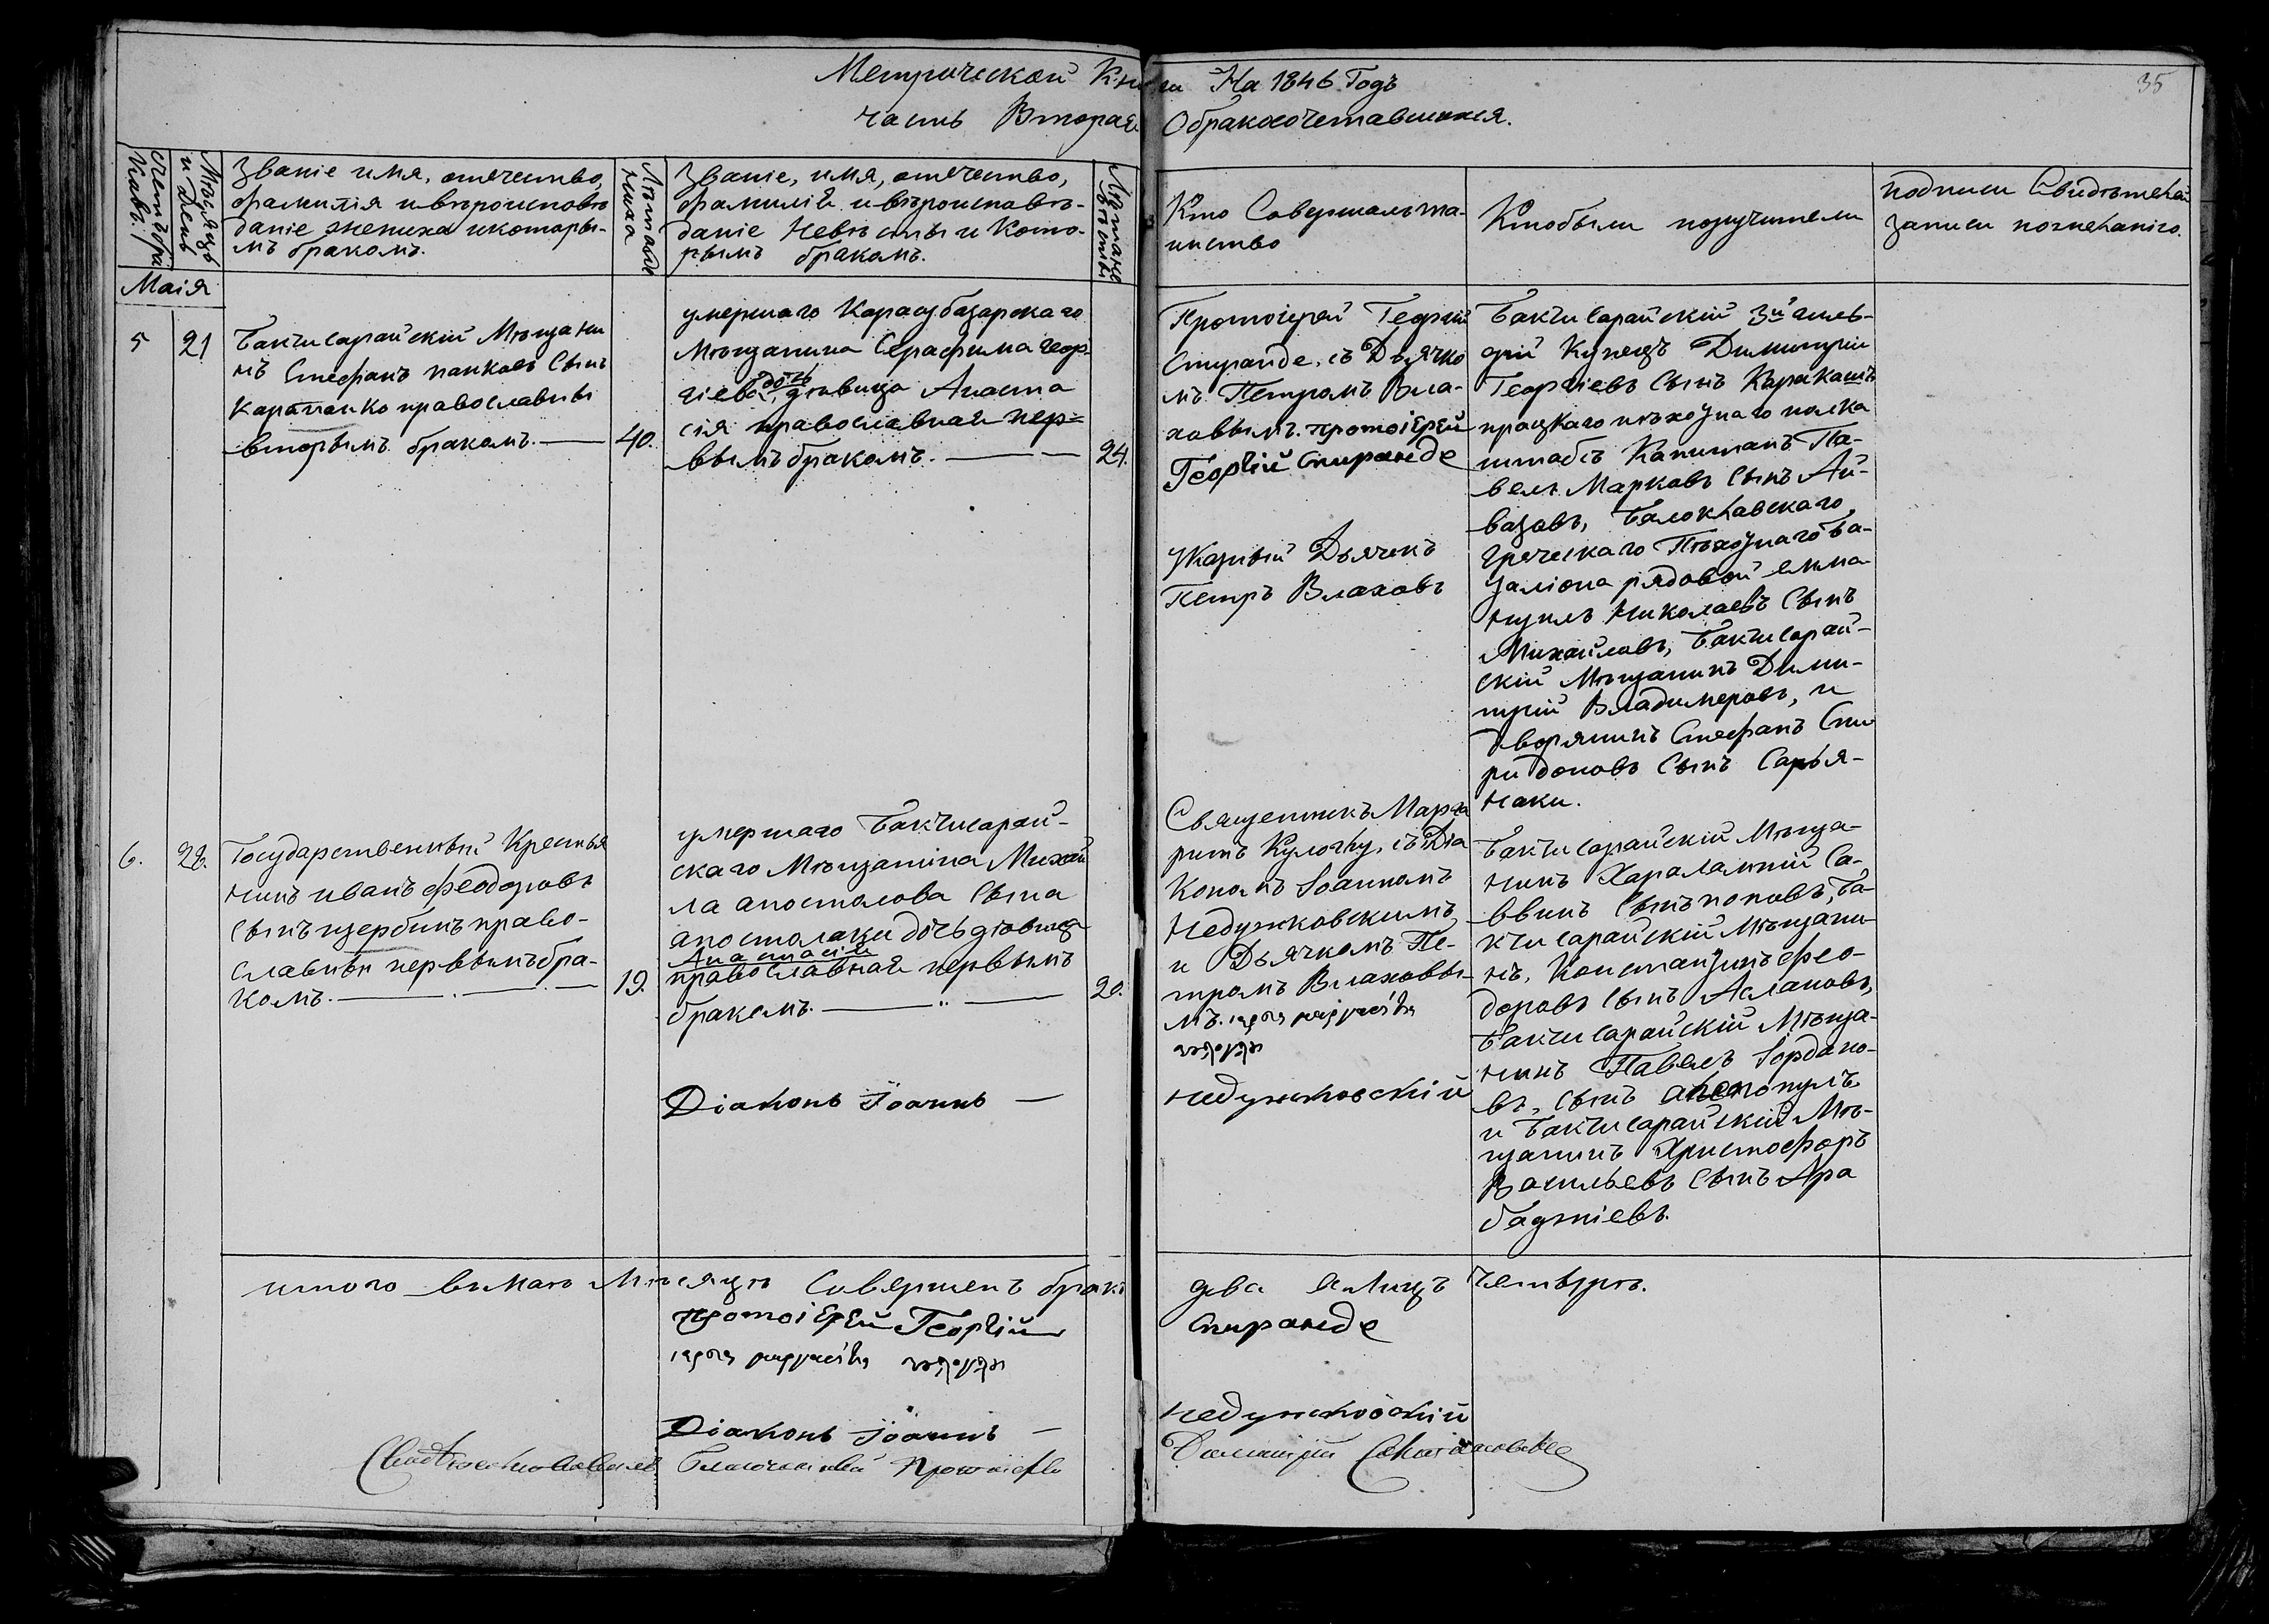 Метрической Книги На 1846 Годъ
часть Вторая Обракосочетавшихся.
35
счетъ бра
ковъ.
Мѣсяцъ
и День
Званіе имя, отечество,
фамилія ивѣроисповѣ
даніе жениха икоторы-
мъ бракомъ.
Лѣта же
ниха
Званіе, имя, отечество,
фамилій ивѣроисповѣ-
даніе Невѣсты и Кото-
рымъ бракомъ.
Лѣта не
вѣсты
Кто Совершалъ та-
инство
Ктобыли поручители
подписи Свидѣтелей
записи
Маія
5
21
Бакчисарайскій Мѣщани
нъ Стефанъ панковъ Сынъ
Карапанко православный
вторымъ бракомъ.
40.
умершаго Карасубазарскаго
Мѣщанина Серафима геор-
гіева дочь дѣвица Анаста
сія православная пер=
вымъ бракомъ.
24.
Протоіерей Георгій
Спиранде, съ Дьячко
мъ Петромъ Вла-
ховымъ. протоіерей
Георгій Спиранде
Указный Дьячекъ
Петръ Влаховъ
Бакчисарайскій 3й гиль-
дій Купецъ Димитрій
Георгіевъ Сынъ Каракашъ
працкаго пѣхотнаго полка
штабсъ Капитанъ Па-
велъ Марковъ Сынъ Ай-
вазовъ, Балоклавскаго
Греческаго Пѣхотнаго ба-
таліона рядовой емма
нуилъ Николаевъ Сынъ
Михайловъ, Бакчисарай-
скій Мѣщанинъ Дими-
трій Владимеровъ, и
Дворянинъ Стефанъ Спи
ридоновъ Сынъ Сарья-
наки.
6.
22.
Государственный Крестья
нинъ иванъ феодоровъ
Сынъ щербинъ право-
славный первымъ бра-
комъ.
19.
умершаго Бакчисарай-
скаго Мѣщанина Михаи
ла апостолова Сына
апостолаки дочь дѣвица
Анастасія
православная первымъ
бракомъ.
20.
Діаконъ Іоаннъ
Священникъ Марга
ритъ съ Діа
Кономъ Іоанномъ
Недужковскимъ,
и Дьячкомъ Пе-
тромъ Влаховы-
мъ.
Недужковскій
Бакчисарайскій Мѣща-
нинъ Харалампій Са-
ввинъ Сынъ поповъ, Ба-
кчисарайскій Мѣщани-
нъ, Константинъ Фео-
доровъ Сынъ Аслановъ,
Бакчисарайскій Мѣща-
нинъ Павелъ Іордано-
въ, Сынъ
и Бакчисарайскій Мѣ-
щанинъ Христофоръ
Васильевъ Сынъ Ара
баджіевъ.
итого вмаѣ Мѣсяцѣ Совершенъ бракъ два алицъ четырѣ.
протоіерей Георгій Спиранде
Діаконъ Іоаннъ Недужковскій
Свидѣтельствовалъ Благочинный Протоіерей Димитрій